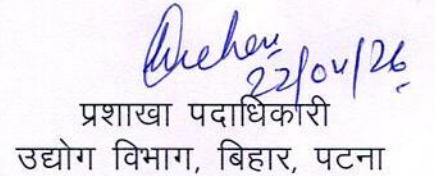 22/04/26
प्रशाखा पदाधिकारी
उद्योग विभाग, बिहार, पटना